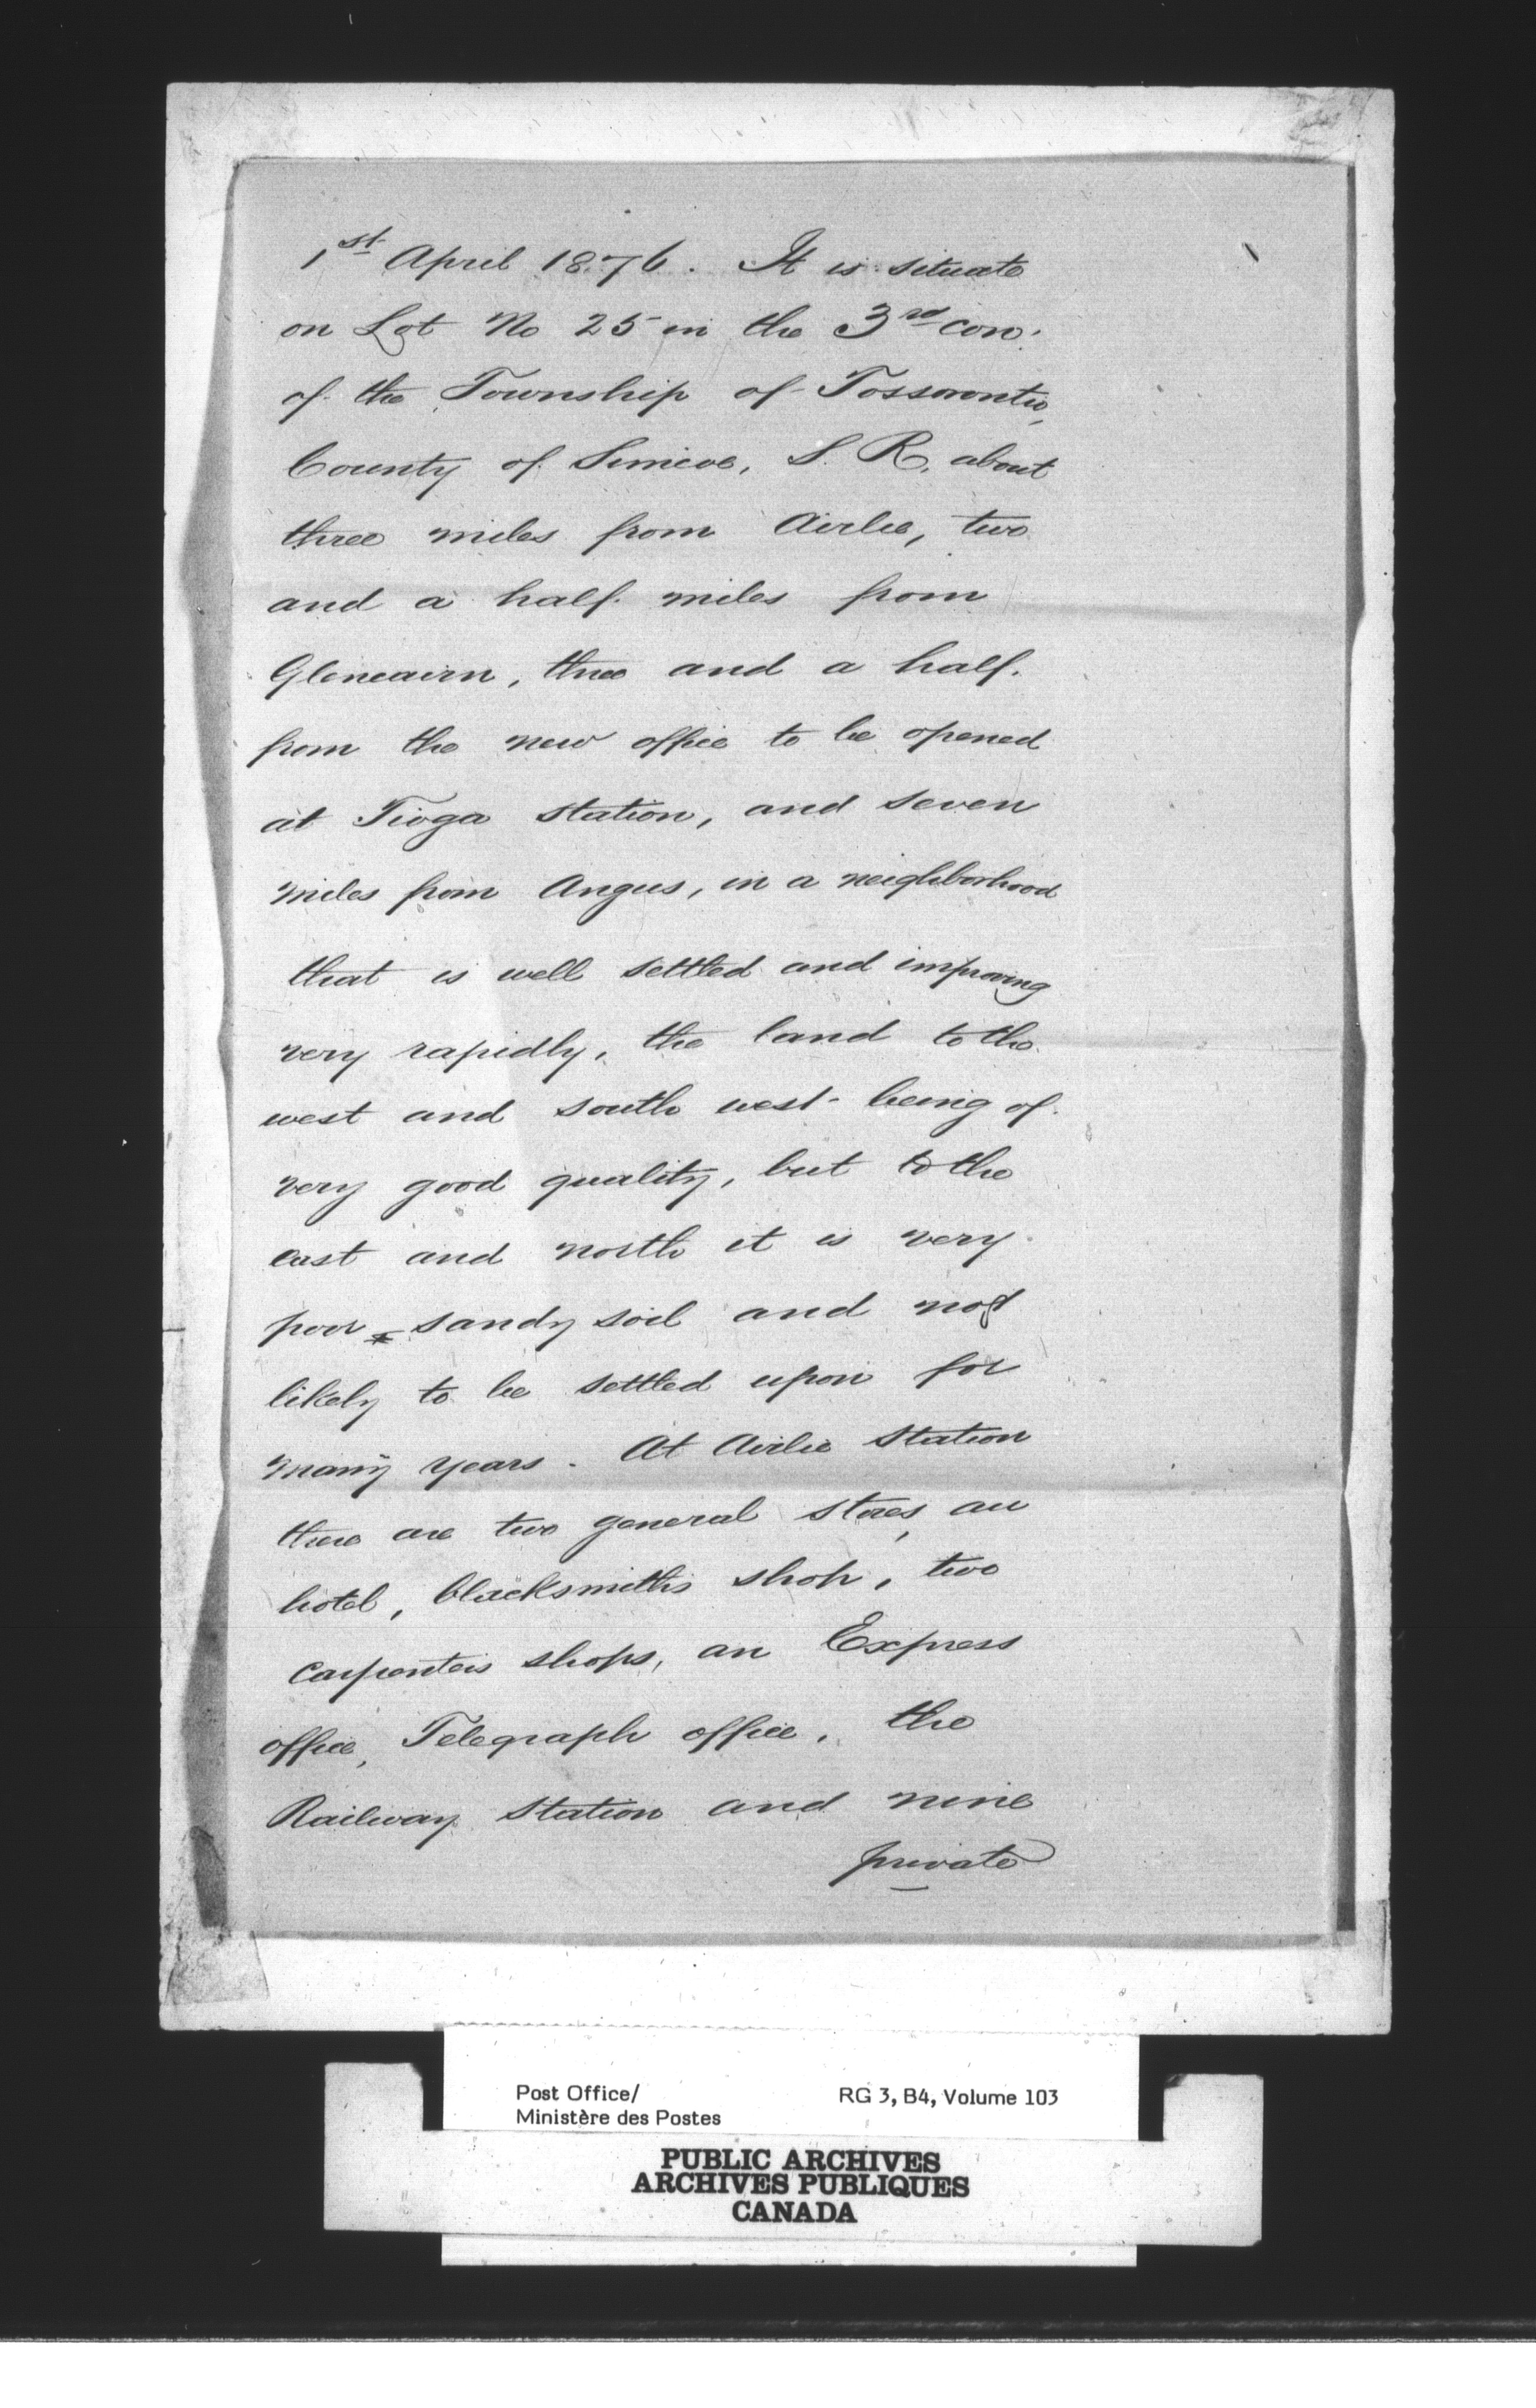 1st April 1876. It is situate
on Lot No 25 in the 3rd con.
of the Township of Tossorontio,
County of Simcoe, S. R. about
three miles from Airlie, two
and a half miles from
Glencairn, three and a half
from the new office to be opened
at Tioga Station, and seven
miles from Angus, in a neighborhood
that is well settled and improving
very rapidly, the land to the
west and south west being of
very good quality, but to the
east and north it is very
poor sandy soil and not
likely to be settled upon for
many years. At Airlie Station
there are two general stores, an
hotel, blacksmiths shop, two
carpenters shops, an Express
office, Telegraph office, the
Railway Station and nine
private
Post Office/ RG 3, B4, Volume 103
Ministère des Postes
PUBLIC ARCHIVES
ARCHIVES PUBLIQUES
CANADA